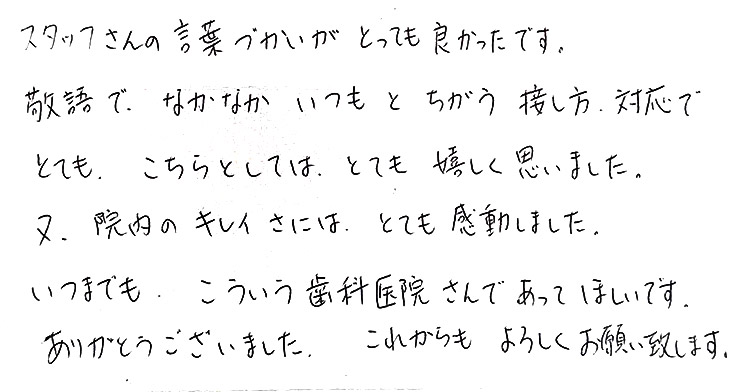 スタッフさんの言葉づかいがとっても良かったです。
敬語で、なかなかいつもとちがう接し方、対応で
とても、こちらとしては、とても嬉しく思いました。
又、院内のキレイさには、とても感動しました。
いつまでも、こういう歯科医院さんであってほしいです。
ありがとうございました。これからもよろしくお願い致します。